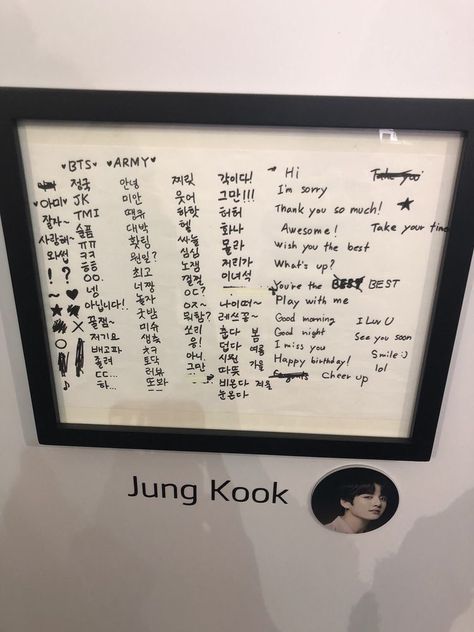 ♥BTS♥ ♥ARMY♥
아미
잘자~
사랑해
와썹
! ?
~ ♥
★
✕
♪
정국
JK
TMI
슬픔
ㅠㅠ
ㅋㅋ
ㅎㅎ
OO
넹
아닙니다!!
꿀잼~
저기요
배고파
졸려
ㄷㄷ...
하...
안녕
미안
땡큐
대박
화팅
뭔일?
최고
너짱
놀자
굿밤
미슈
생축
ㅊㅋ
토닥
러뷰
또봐
찌릿
웃어
하핫
헬
싸늘
심심
노잼
껄껄
뭐함?
쏘리
웅!
아니.
그만
각이다!
그만!!!
허허
화나
몰라
저리가
이녀석
나이떠~
레쓰꼬~
춥다 봄
덥다 여름
시원 가을
따뜻
비온다 겨울
눈온다
Hi
I'm sorry
Thank you so much! ★
Awesome! Take your time
Wish you the best
What's up?
You're the BEST
Play with me
Good morning I Luv U
Good night See you soon
I miss you Smile :)
Happy birthday! lol
Cheer up
Jung Kook